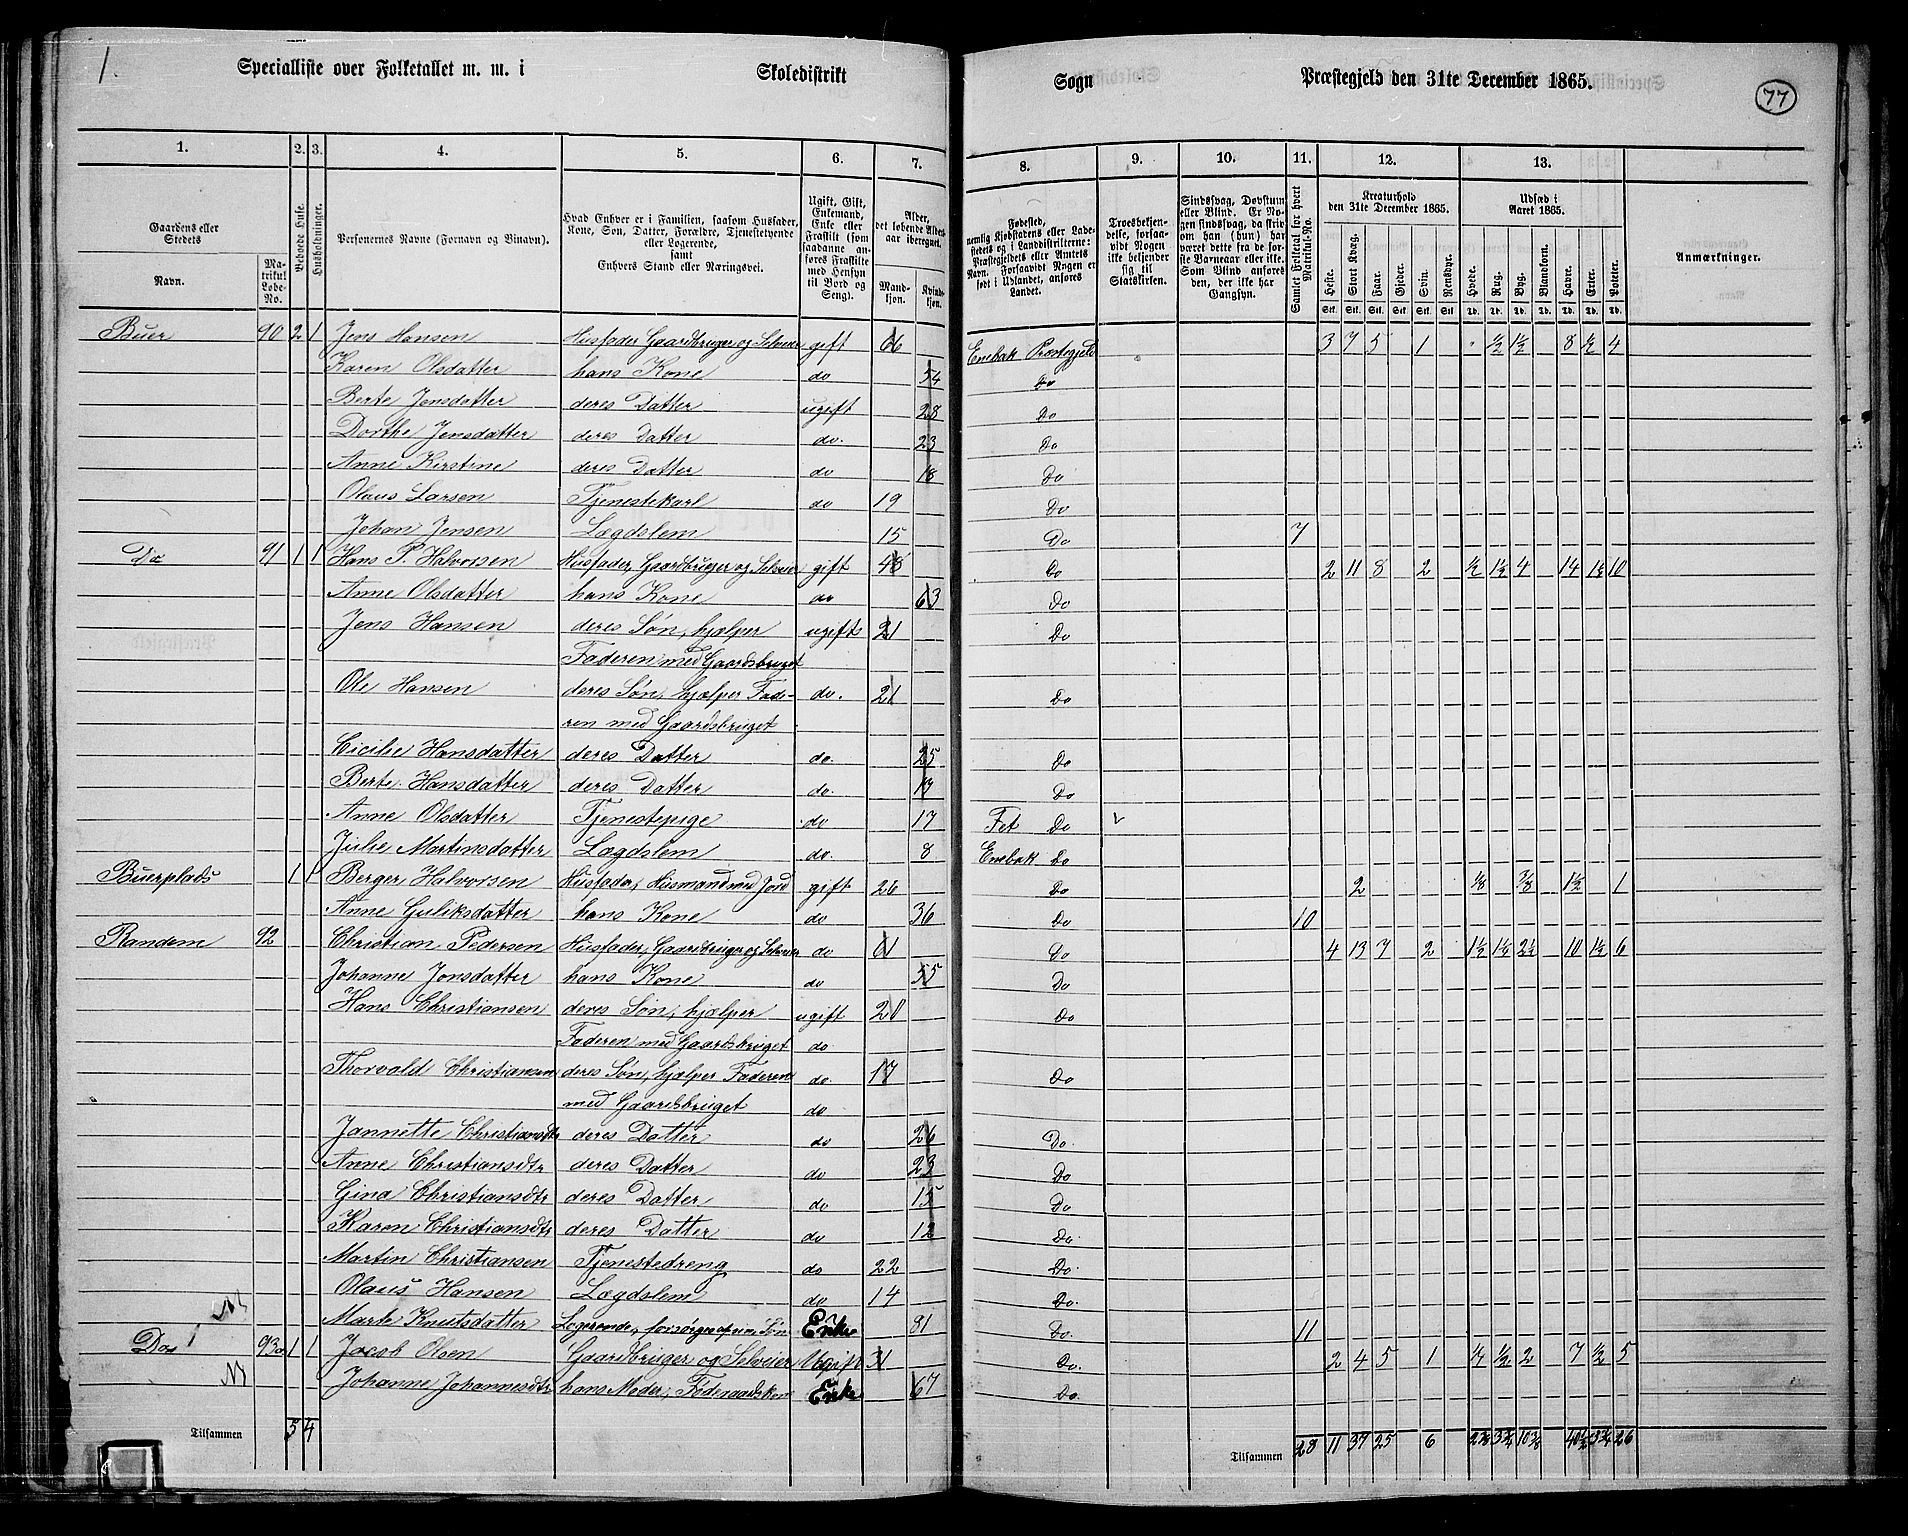 1.
Specialliste over Folketallet m. m. i Skoledistrikt Sogn Præstegjeld den 31te December 1865.
77
1. 2. 3. 4. 5. 6. 7. 8. 9. 10. 11. 12. 13.
Gaardens eller Stedets
Navn.
Matrikul Lobe-No.
Beboede Huse.
Husholdninger.
Personernes Navne (Fornavn og Vinavn).
Hvad Enhver er i Familien, saasom Husfader, Kone, Søn, Datter, Forældre, Tjenestetyende eller Logerende, samt Enhvers Stand eller Næringsvei.
Ugift, Gift, Enkemand, Enke eller Fraskilt (som saadanne anføres Fraskilte med Hensyn til Bord og Seng).
Alder, det løbende Aldersaar iberegnet.
Mandkjøn. Kvindekjøn.
Fødested, nemlig Kjøbstadens eller Ladestedets og i Landdistrikterne: Præstegjeldets eller Amtets Navn. Forsaavidt Nogen er født i Udlandet, anføres Landet.
Troesbekjendelse, forsaavidt Nogen ikke bekjender sig til Statskirken.
Sindssvag, Døvstum eller Blind. Er Nogen sindssvag, da skrives om han (hun) har været dette fra de første Barneaar eller ikke. Som Blind anføres den, der ikke har Gangsyn.
Samlet Folketal for hvert Matrikul-No.
Kreaturhold den 31te December 1865.
Heste. Stort Kvæg. Faar. Gjeder. Svin. Rensdyr.
Udsæd i Aaret 1865.
Hvede. Rug. Byg. Blandkorn. Havre. Erter. Poteter.
Anmærkninger.
Buer 90 2 1 Jens Hansen Husfader, Gaardbruger og Selveier gift 66 Enebak Præstegjeld 3 7 5 1 " ½ 1½ 8 ½ 4
Karen Olsdatter hans Kone do 54 Do
Berte Jensdatter deres Datter ugift 28 Do
Dorthe Jensdatter deres Datter do. 23 Do
Anne Kirstine deres Datter do 18 Do
Olaus Larsen Tjenestekarl do 19 Do
Johan Jensen Lægdslem 15 Do 7
Do 91 1 1 Hans P. Halvorsen Husfader, Gaardbruger og Selveier gift Do 2 11 8 2 ½ 1½ 4 14 1½ 10
Anne Olsdatter hans Kone do 63 Do
Jens Hansen deres Søn, hjælper ugift 21 Do
Faderen med Gaardsbruget
Ole Hansen deres Søn, hjælper Fade- do. 21 Do
ren med Gaardsbruget
Cicilie Hansdatter deres Datter do. 25 Do
Berte Hansdatter deres Datter do. Do
Anne Olsdatter Tjenestepige do 17 Fet Do
Julie Martinsdatter Lægdslem do. 8 Enebak Do
Buerplads 1 1 Berger Halvorsen Husfader, Husmand med Jord gift 26 Do 2 ⅛ ⅜ 1½ 1
Anne Guliksdatter hans Kone do 36 Do 10
Randem 92 Christian Pedersen Husfader, Gaardbruger og Selveier do 61 Do 4 13 7 2 1½ 1½ 2½ 10 1½ 6
Johanne Jonsdatter hans Kone do 55 Do
Hans Christiansen deres Søn, hjælper ugift Do
Faderen med Gaardsbruget do
Thorvald Christiansen deres Søn, hjælper Faderen do. 17 Do
med Gaardsbruget do
Jannette Christiansdtr deres Datter do 26 Do.
Anne Christiansdtr deres Datter do 23 Do
Gina Christiansdtr deres Datter do 15 Do
Karen Christiansdtr deres Datter do 12 Do.
Martin Christiansen Tjenestedreng do 22 Do.
Olaus Hansen Lægdslem do 14 Do.
Marte Knutsdatter Logerende, forsørges af sin Søn Enke 81 Do. 11
Do 93a 1 1 Jacob Olsen Gaardbruger og Selveier Ugift 31 Do. 2 4 5 1 ¼ ½ 2 7 ½ 5
Johanne Johannesdtr hans Moder, Føderaadskone Enke 67 Do.
Tilsammen 5 4
Tilsammen 28 11 37 25 6 2⅜ 3¾ 10⅜ 40½ 26